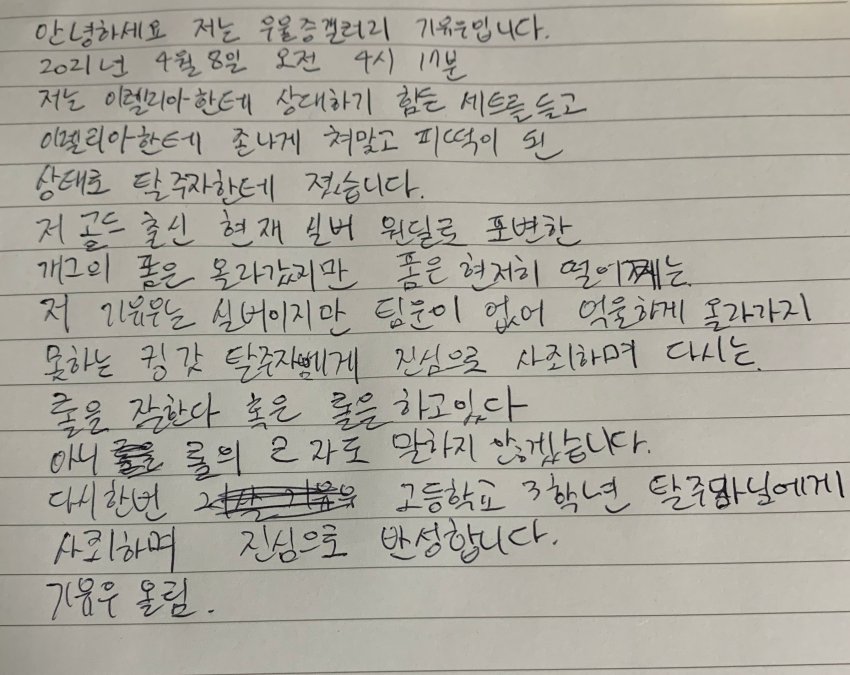 안녕하세요 저는 우울증갤러리 기유우입니다.
2021년 4월 8일 오전 4시 17분
저는 이렐리아한테 상대하기 힘든 세트를 들고
이렐리아한테 존나게 쳐맞고 피떡이 된
상태로 탈주자한테 졌습니다.
저 골드 출신 현재 실버 원딜로 포변한
개그의 폼은 올라갔지만 폼은 현저히 떨어지는
저 기유우는 실버이지만 팀운이 없어 억울하게 올라가지
못하는 킹갓 탈주자님에게 진심으로 사죄하며 다시는
롤을 잘한다 혹은 롤을 하고있다
아니 롤의 ㄹ 자도 말하지 않겠습니다.
다시한번 고등학교 3학년 탈주자님에게
사죄하며 진심으로 반성합니다.
기유우 올림.